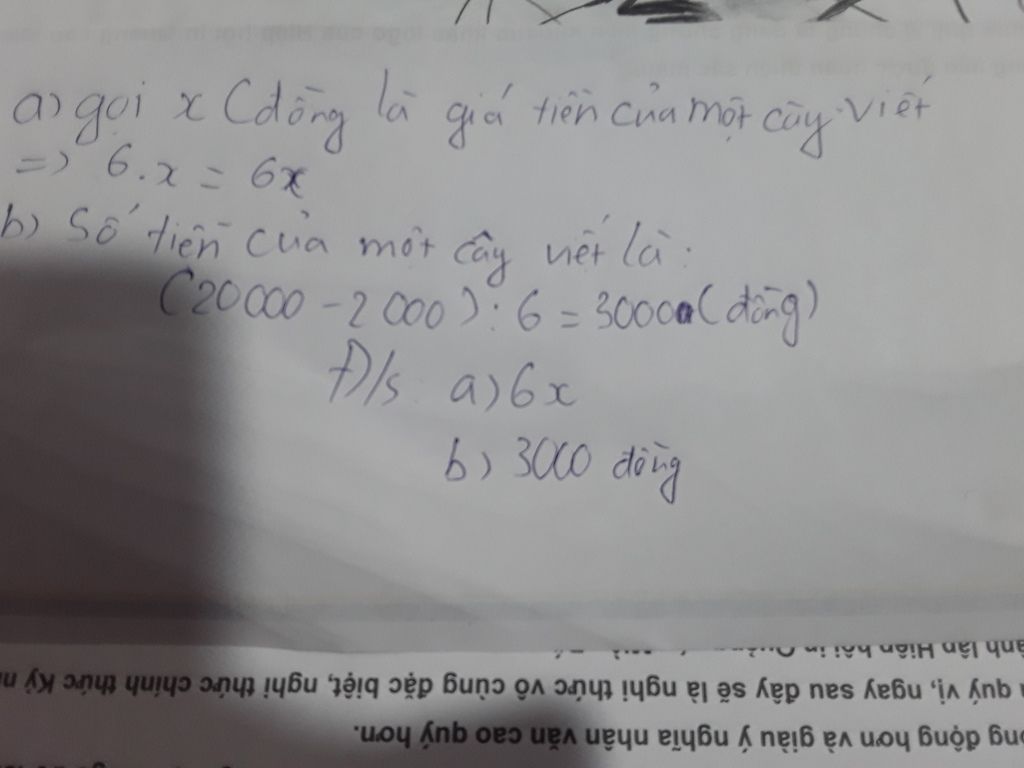 a) gọi x (đồng là giá tiền của một cây viết
=> 6.x = 6x
b) Số tiền của một cây viết là:
(20000 - 2000) : 6 = 3000 (đồng)
Đ/s a) 6x
b) 3000 đồng
ong động hơn và giàu ý nghĩa nhân văn cao quý hơn.
quý vị, ngay sau đây sẽ là nghi thức vô cùng đặc biệt, nghi thức chính thức Kỷ
lần Hiến